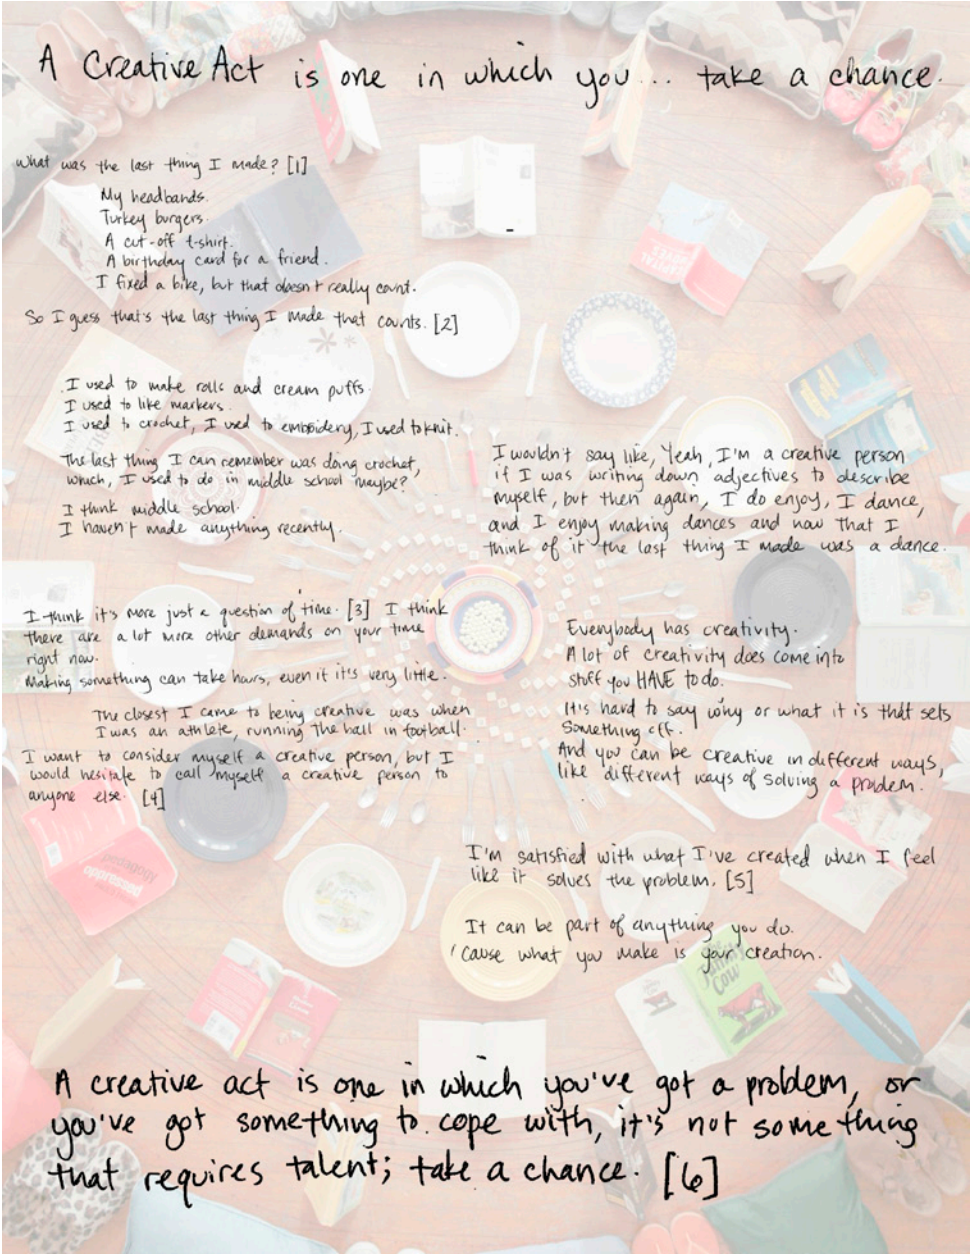 A Creative Act is one in which you... take a chance.
What was the last thing I made? [1]
My headbands.
Turkey burgers.
A cut-off t-shirt.
A birthday card for a friend.
I fixed a bike, but that doesn't really count.
So I guess that's the last thing I made that counts. [2]
I used to make rolls and cream puffs.
I used to like markers.
I used to crochet, I used to embroidery, I used to knit.
The last thing I can remember was doing crochet,
which, I used to do in middle school maybe?
I think middle school.
I haven't made anything recently.
I wouldn't say like, Yeah, I'm a creative person
if I was writing down adjectives to describe
myself, but then again, I do enjoy, I dance,
and I enjoy making dances and now that I
think of it the last thing I made was a dance.
I think it's more just a question of time. [3] I think
there are a lot more other demands on your time
right now.
Making something can take hours, even if it's very little.
The closest I came to being creative was when
I was an athlete, running the ball in football.
I want to consider myself a creative person, but I
would hesitate to call myself a creative person to
anyone else. [4]
Everybody has creativity.
A lot of creativity does come into
stuff you HAVE to do.
It's hard to say why or what it is that sets
something off.
And you can be creative in different ways,
like different ways of solving a problem.
I'm satisfied with what I've created when I feel
like it solves the problem. [5]
It can be part of anything you do.
'Cause what you make is your creation.
Cow
A creative act is one in which you've got a problem, or
you've got something to cope with, it's not something
that requires talent; take a chance. [6]